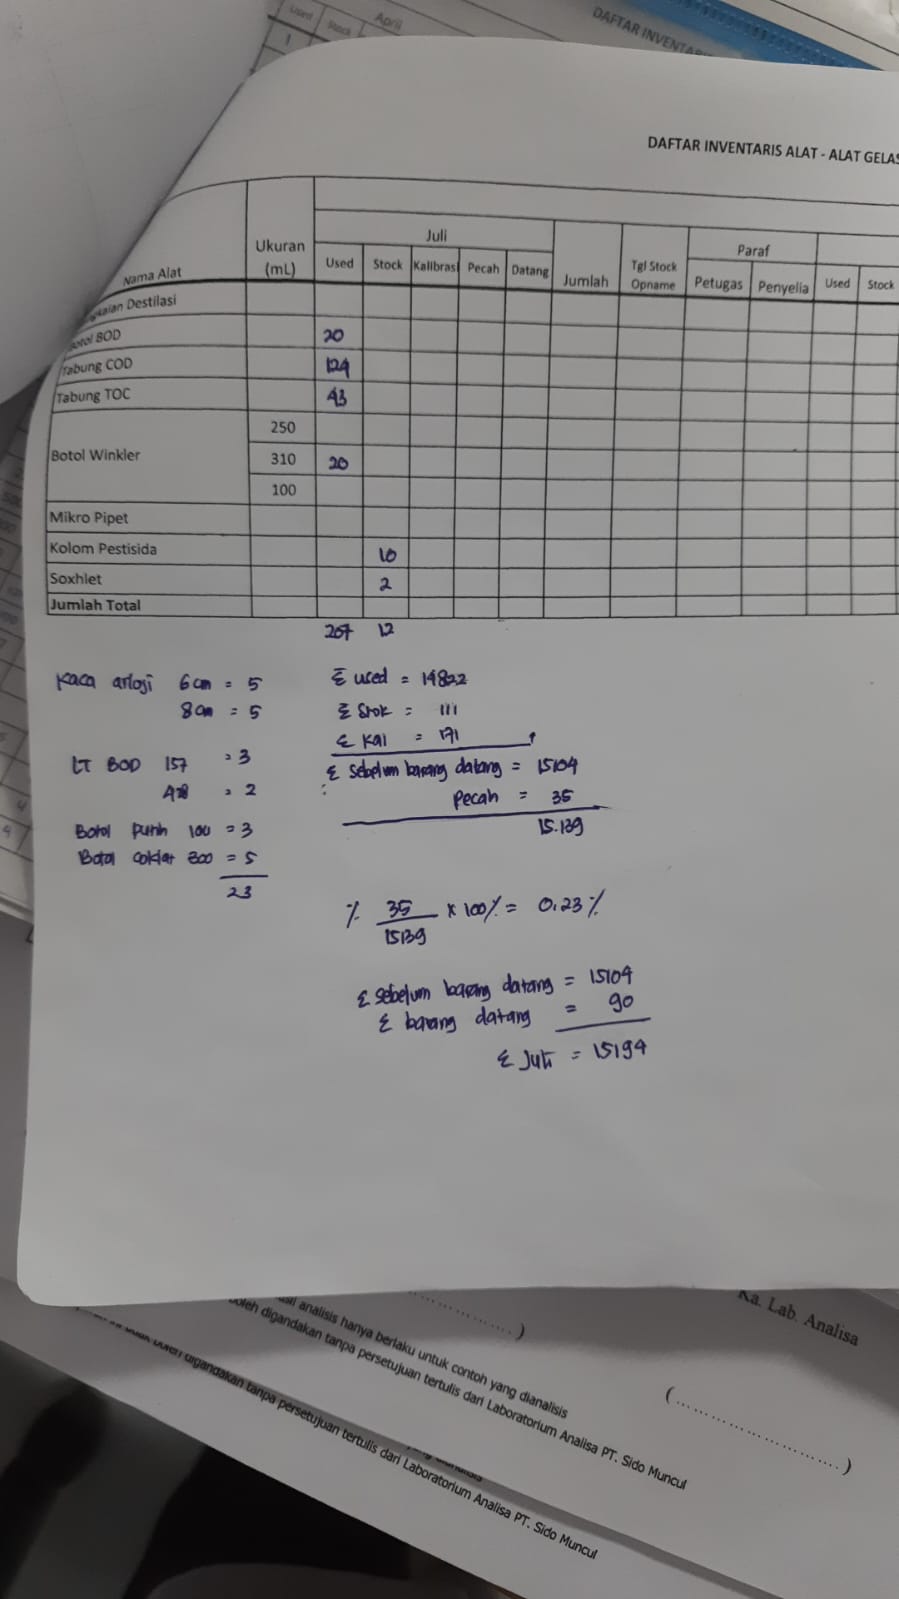 Used
Stock
April
1
DAFTAR INVENTARIS
DAFTAR INVENTARIS ALAT - ALAT GELAS
Nama Alat
Ukuran
(mL)
Juli
Used
Stock
Kalibrasi
Pecah
Datang
Jumlah
Tgl Stock
Opname
Paraf
Petugas
Penyelia
Used
Stock
Destilasi
Botol BOD 20
Tabung COD 124
Tabung TOC 43
Botol Winkler
250
310 20
100
Mikro Pipet
Kolom Pestisida 10
Soxhlet 2
Jumlah Total
207 12
Kaca arloji 6cm = 5
8cm = 5
LT BOD 157 = 3
= 2
Botol putih 100 = 3
Botol coklat 300 = 5
23
Σ used = 14822
Σ Stok = 111
Σ Kal = 171
Σ sebelum barang datang = 15104
Pecah = 35
15.139
% 35 / 15139 x 100% = 0.23%
Σ sebelum barang datang = 15104
Σ barang datang = 90
Σ Juli = 15194
Ka. Lab. Analisa
(.......................)
analisis hanya berlaku untuk contoh yang dianalisis
boleh digandakan tanpa persetujuan tertulis dari Laboratorium Analisa PT. Sido Muncul
boleh digandakan tanpa persetujuan tertulis dari Laboratorium Analisa PT. Sido Muncul